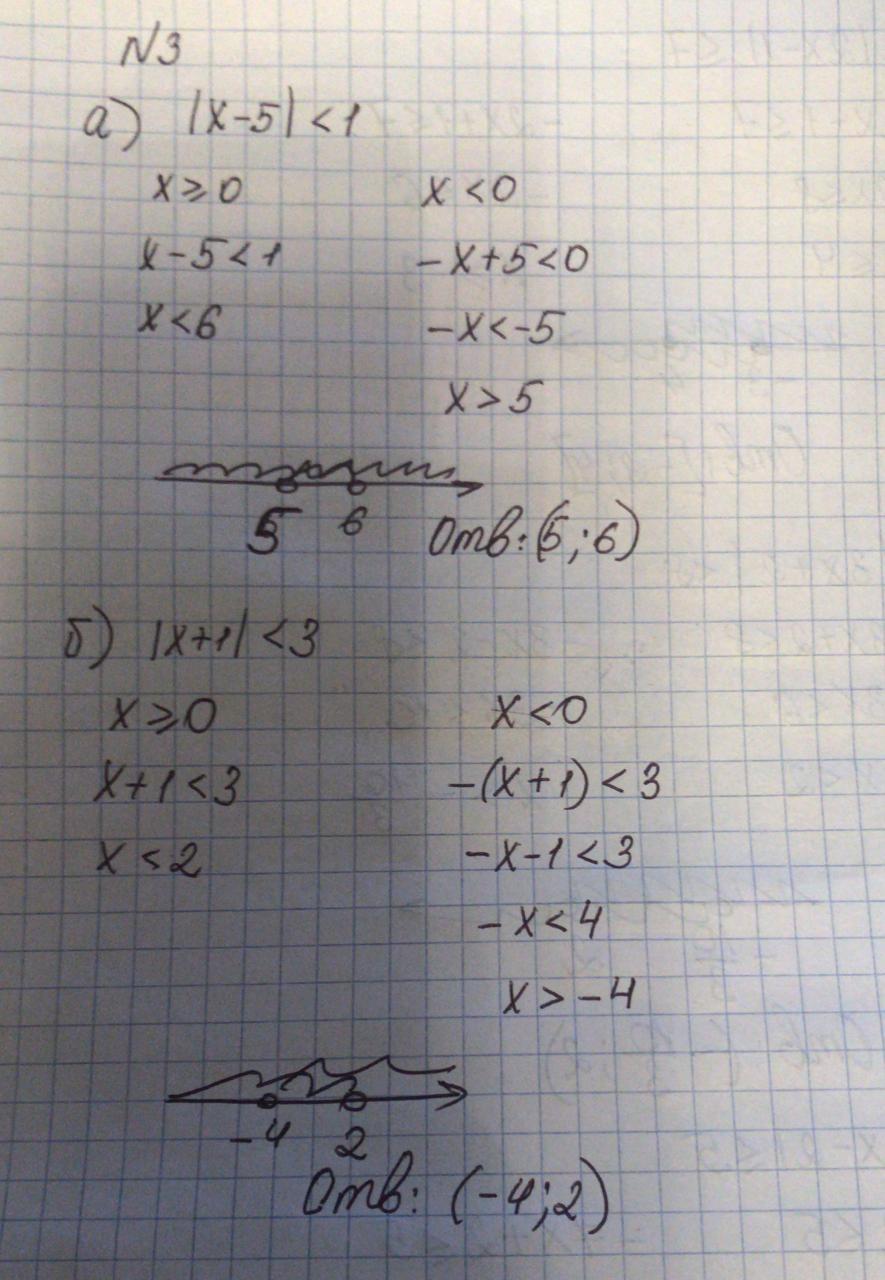 N3
а) |x-5| < 1
x ⩾ 0 x < 0
x - 5 < 1 -x+5<0
x < 6 -x<-5
x > 5
5 6 Отв: (5; 6)
б) |x+1| < 3
x ⩾ 0 x < 0
x+1 < 3 -(x+1) < 3
x < 2 -x-1 < 3
-x < 4
x > -4
-4 2
Отв: (-4; 2)